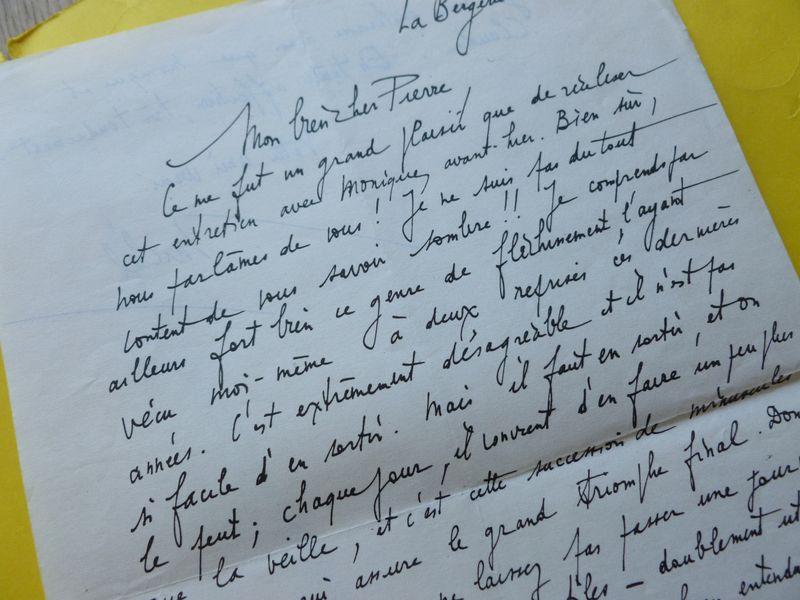 La Berger
Mon bien cher Pierre,
Ce me fut un grand plaisir que de réaliser
cet entretien avec Monique, avant-hier. Bien sûr,
nous parlâmes de vous ! Je ne suis pas du tout
content de vous savoir sombre !! Je comprends par
ailleurs fort bien ce genre de fléchissement, l'ayant
vécu moi-même à deux reprises ces dernières
années. C'est extrêmement désagréable et il n'est pas
si facile d'en sortir. Mais il faut en sortir, et on
le peut ; chaque jour, il convient d'en faire un peu plus
que la veille, et c'est cette succession de minuscules
qui assure le grand triomphe final. Don
ne laissez pas passer une jour
les – doublement ut
entenda